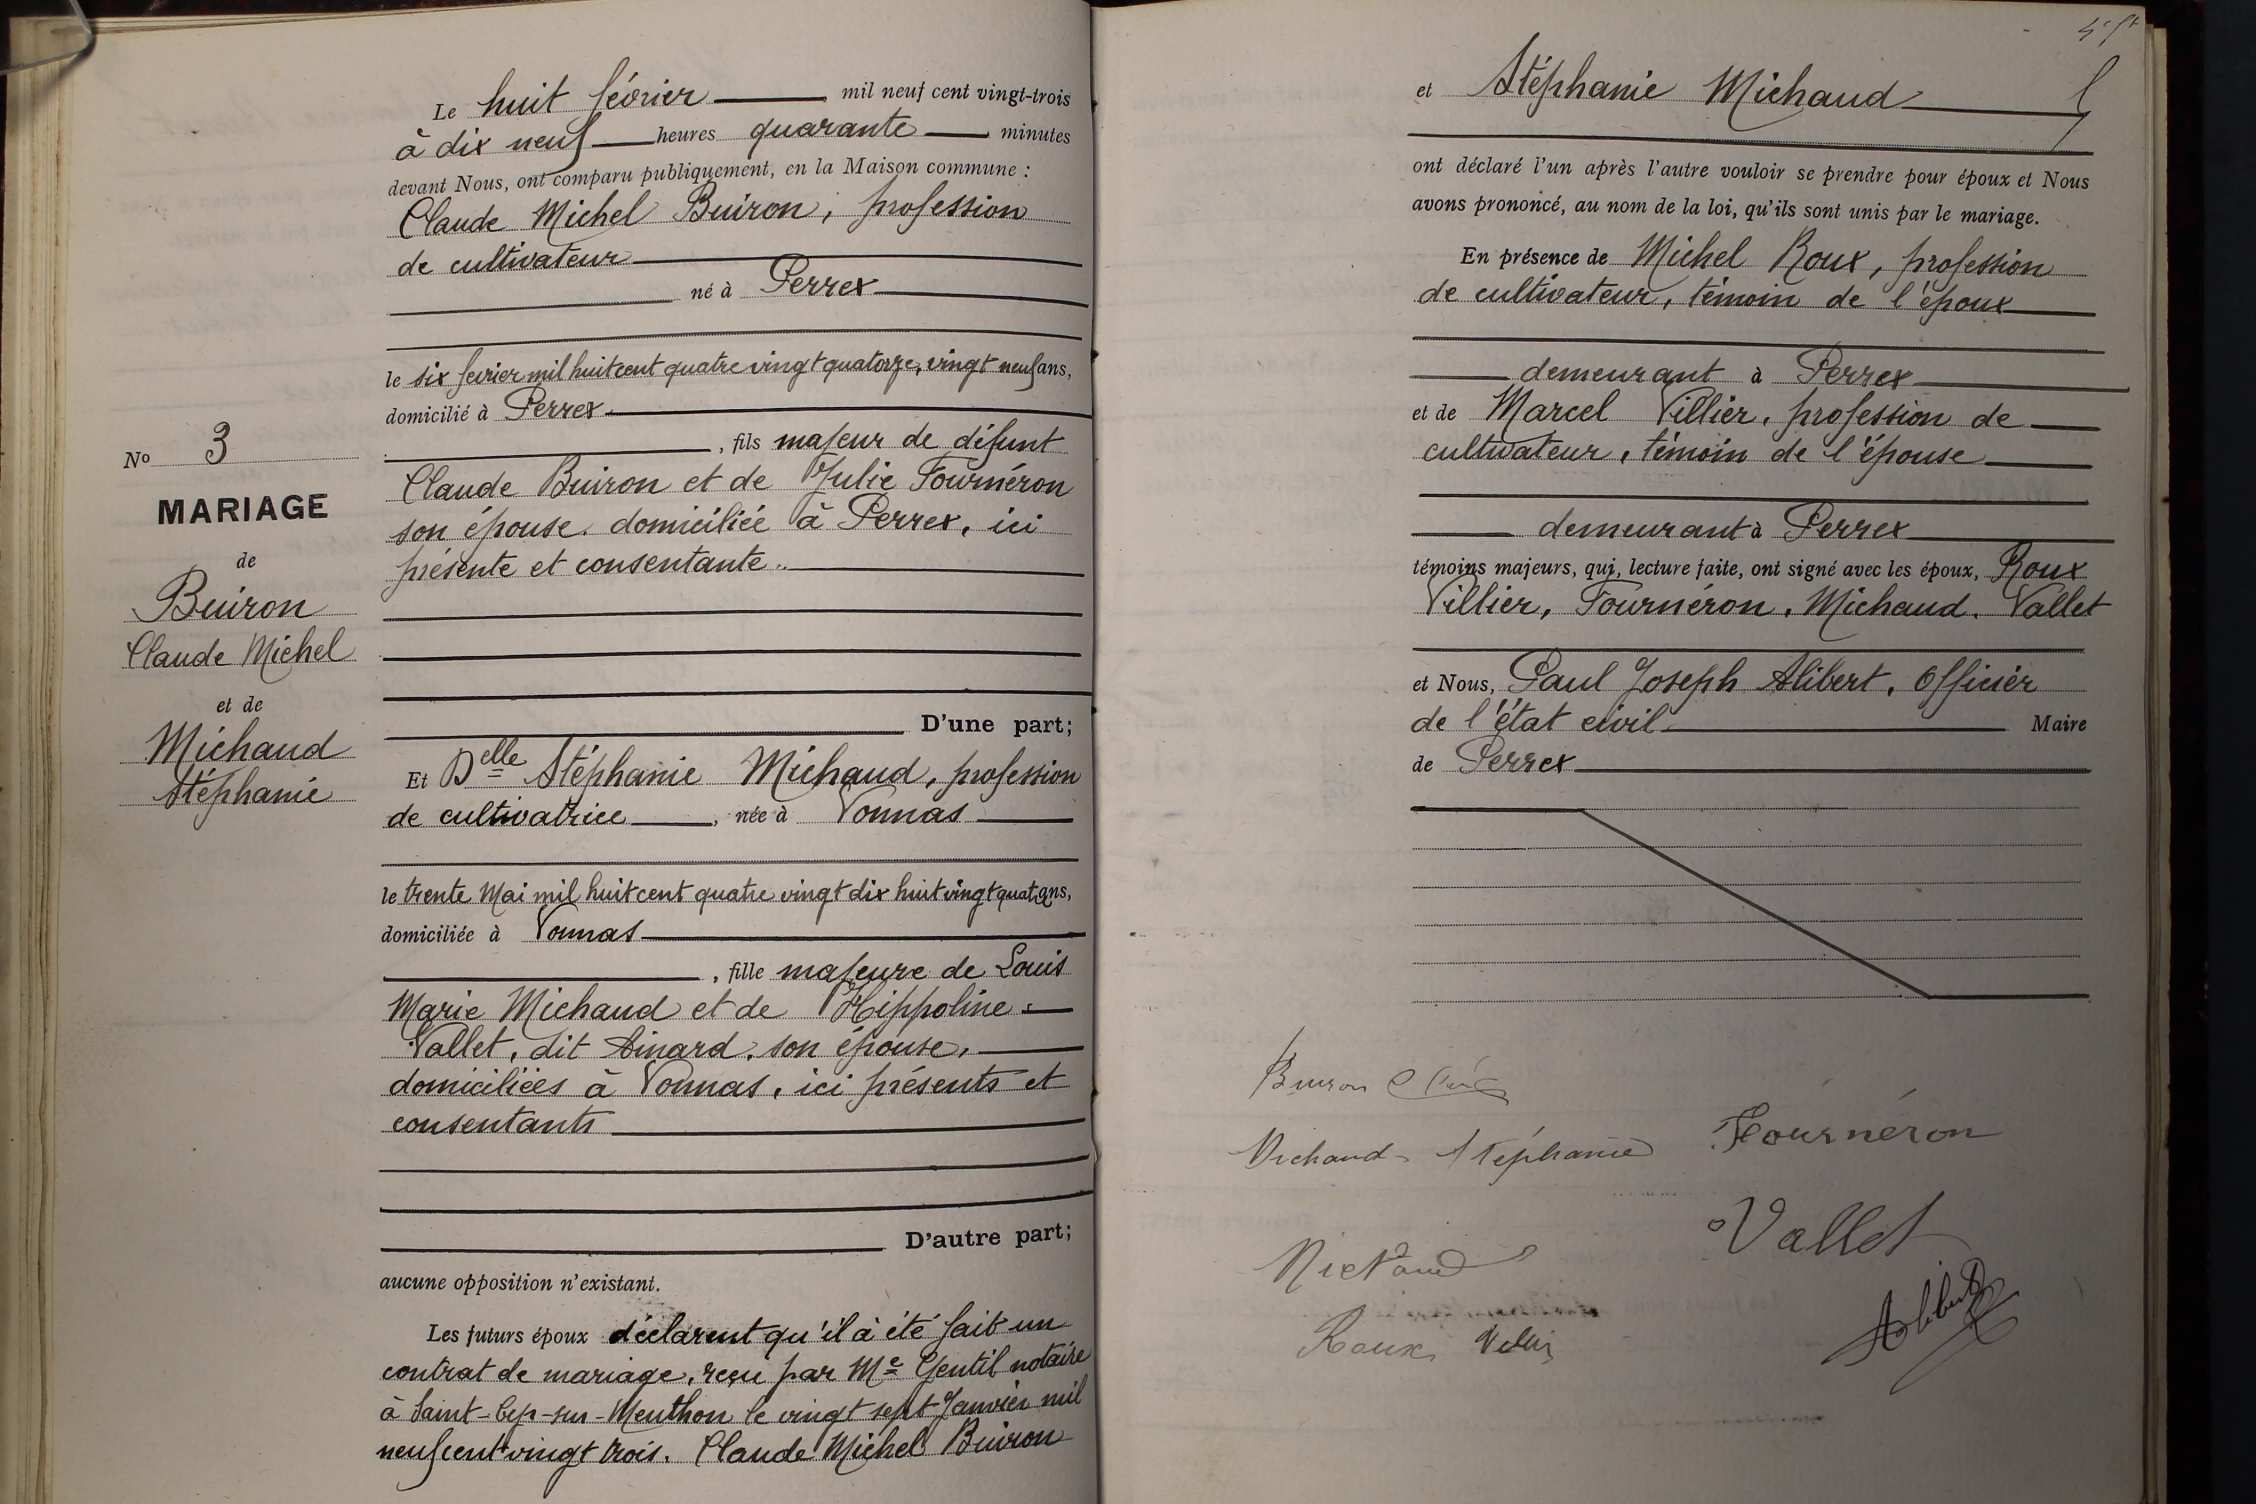 Nº 3
MARIAGE
de
Buiron
Claude Michel
et de
Michaud
Stéphanie
Le huit février mil neuf cent vingt-trois
à dix neuf heures quarante minutes
devant Nous, ont comparu publiquement, en la Maison commune :
Claude Michel Buiron, profession
de cultivateur
né à Perrex
le six février mil huit cent quatre vingt quatorze, vingt neuf ans,
domicilié à Perrex
, fils majeur de défunt
Claude Buiron et de Julie Fournéron
son épouse. domiciliée à Perrex, ici
présente et consentante.
D'une part;
Et Delle Stéphanie Michaud, profession
de cultivatrice, née à Vonnas
le trente Mai mil huit cent quatre vingt dix huit vingt quat ans,
domiciliée à Vonnas
, fille majeure de Louis
Marie Michaud et de Hippoline
Vallet, dit Ainard, son épouse,
domiciliées à Vonnas, ici présents et
consentants
D'autre part;
aucune opposition n'existant.
Les futurs époux déclarent qu'il à été fait un
contrat de mariage, reçu par Me Gentil notaire
à Saint-Cyr-sur-Menthon le vingt sept Janvier mil
neuf cent vingt trois. Claude Michel Buiron
et Stéphanie Michaud
ont déclaré l'un après l'autre vouloir se prendre pour époux et Nous
avons prononcé, au nom de la loi, qu'ils sont unis par le mariage.
En présence de Michel Roux, profession
de cultivateur, témoin de l'époux
demeurant à Perrex
et de Marcel Villier, profession de
cultivateur, témoin de l'épouse
demeurant à Perrex
témoins majeurs, qui, lecture faite, ont signé avec les époux, Roux
Villier, Fournéron, Michaud. Vallet
et Nous, Paul Joseph Alibert, Officier
de l'état civil Maire
de Perrex
Buiron C
Michaud Stéphanie
Fournéron
Vallet
Michaud
Roux
Alibert